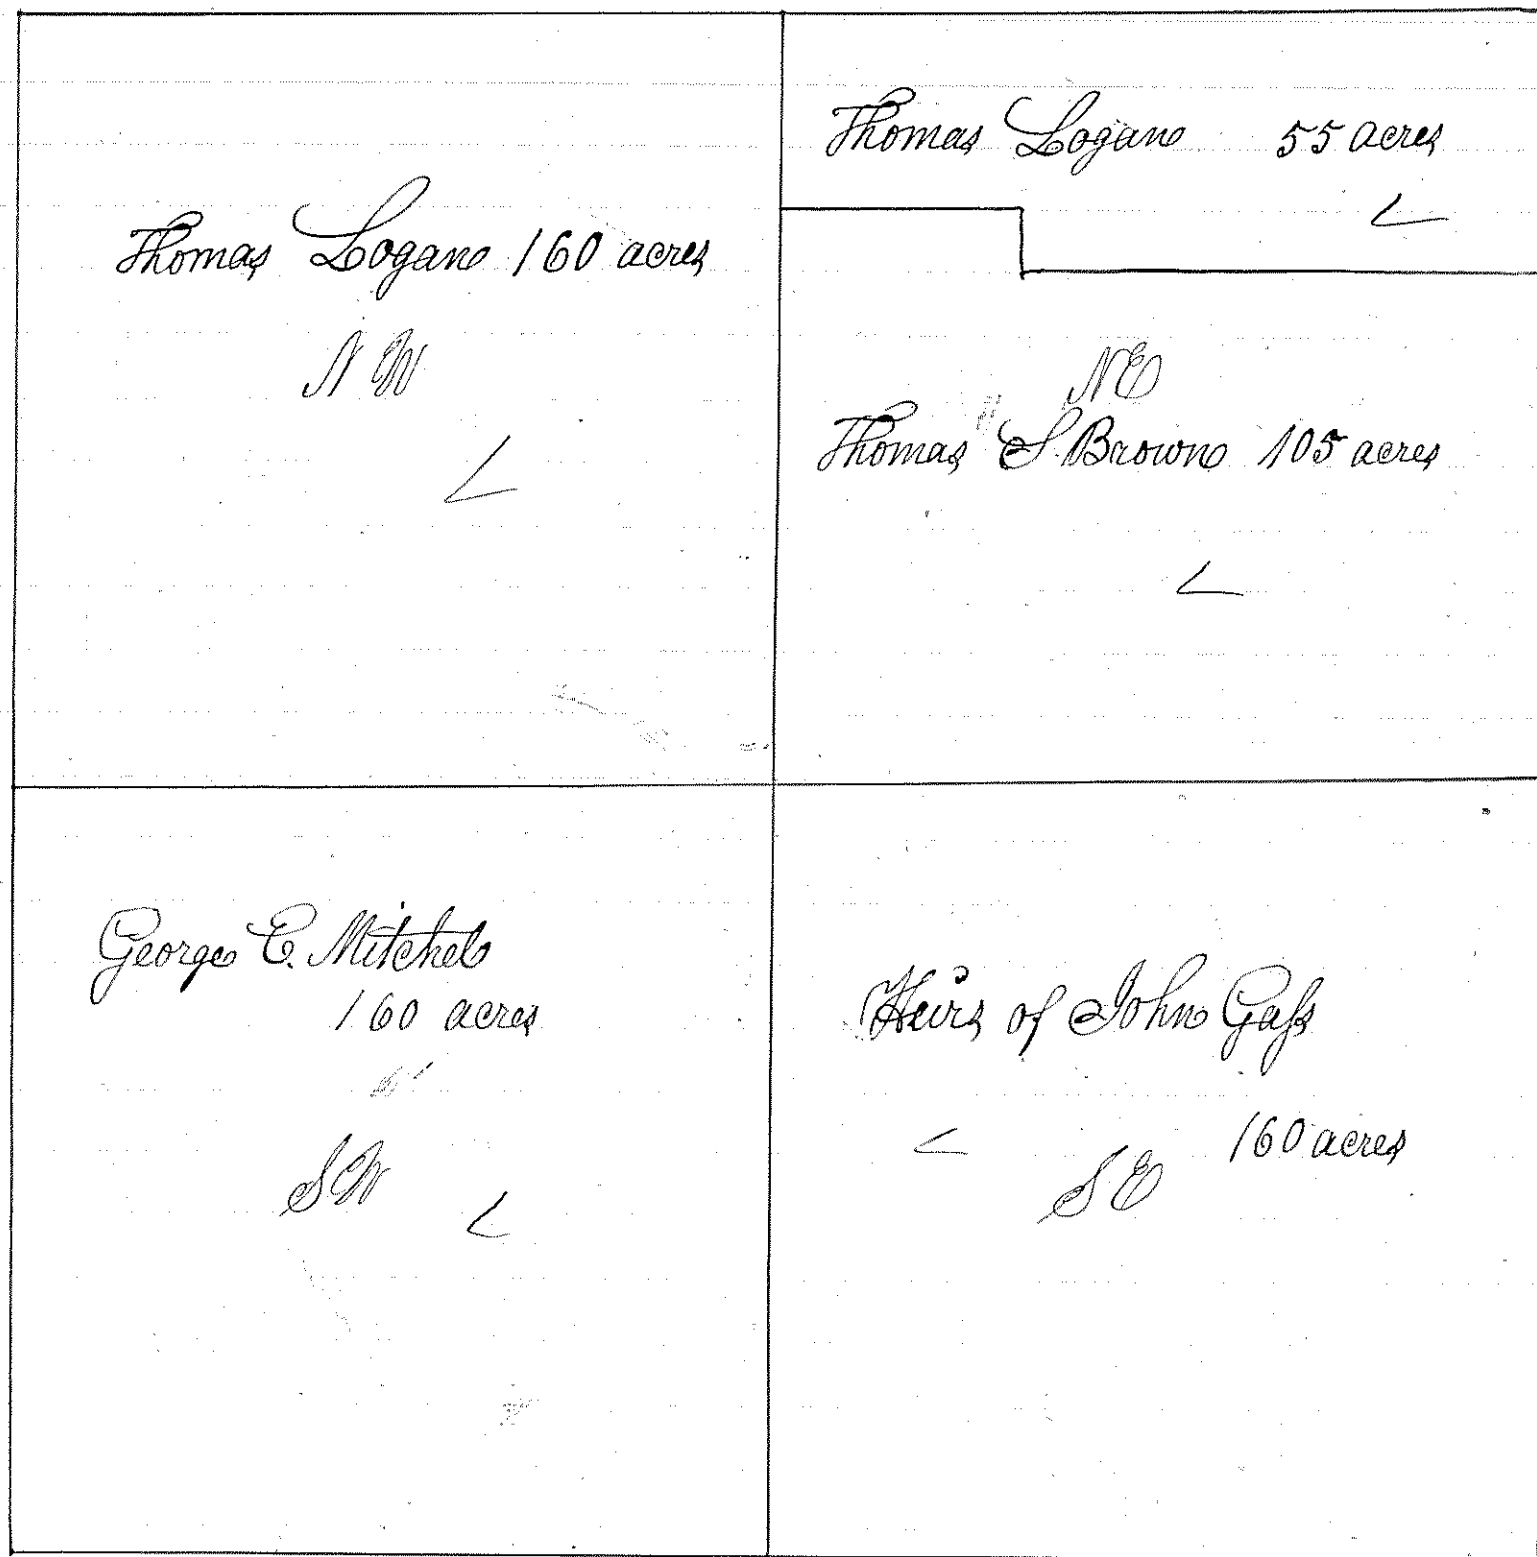 Thomas Logan 55 acres
Thomas Logan 160 acres
N W
N E
Thomas S. Brown 105 acres
George C. Mitchel
160 acres
Heirs of John Gaſs
160 acres
S W
S E